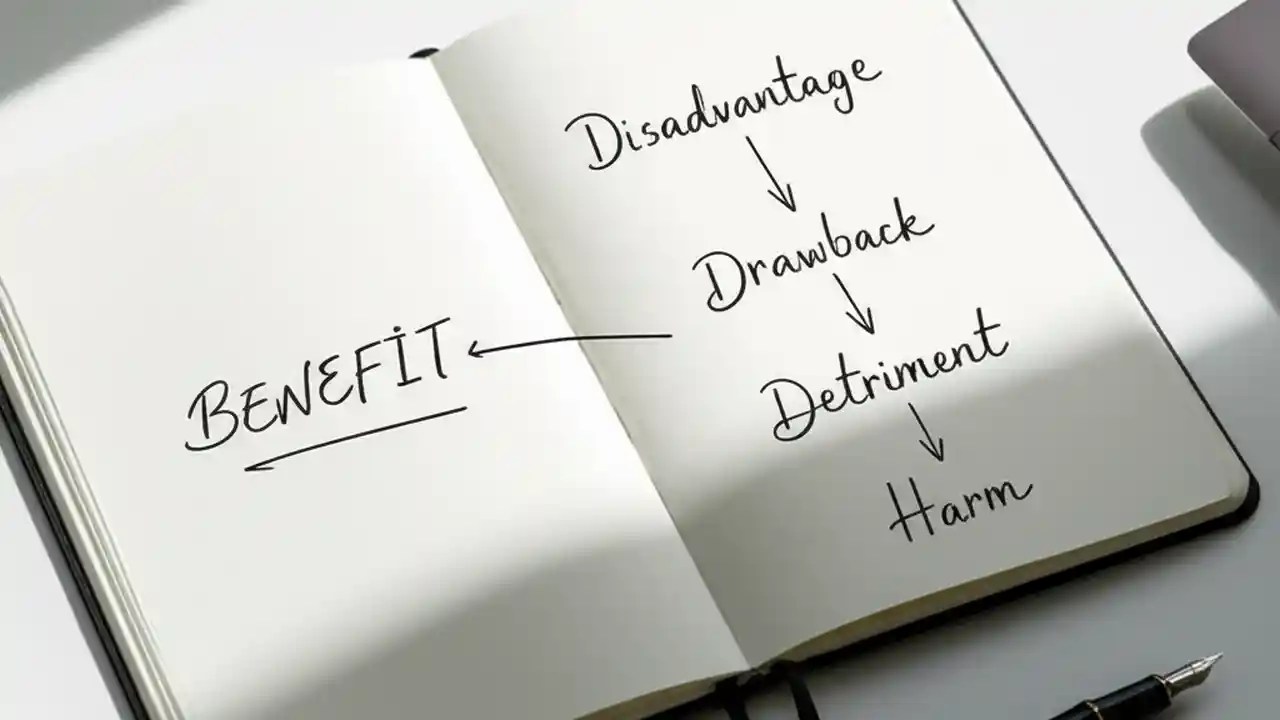 BENEFİT
Disadvantage
Drawback
Detriment
Harm